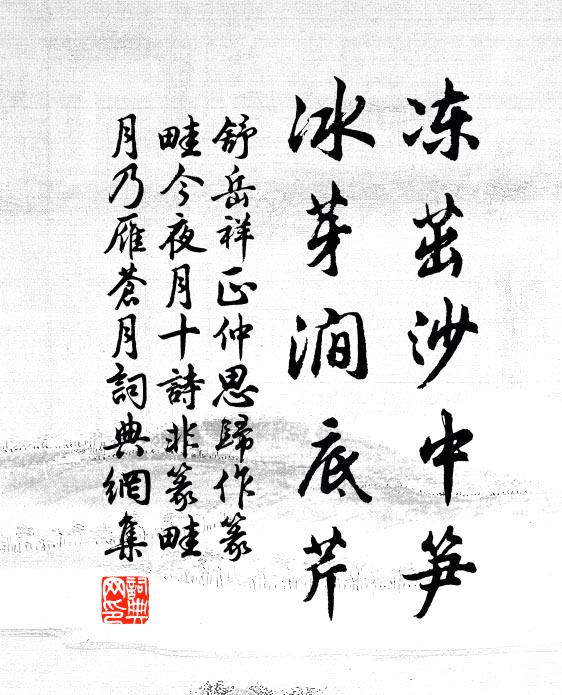 冻茁沙中笋
冰芽涧底芹
舒岳祥正仲思歸作篆
畦今夜月十詩非篆畦
月乃雁蒼月詞典網集
詞典
网印